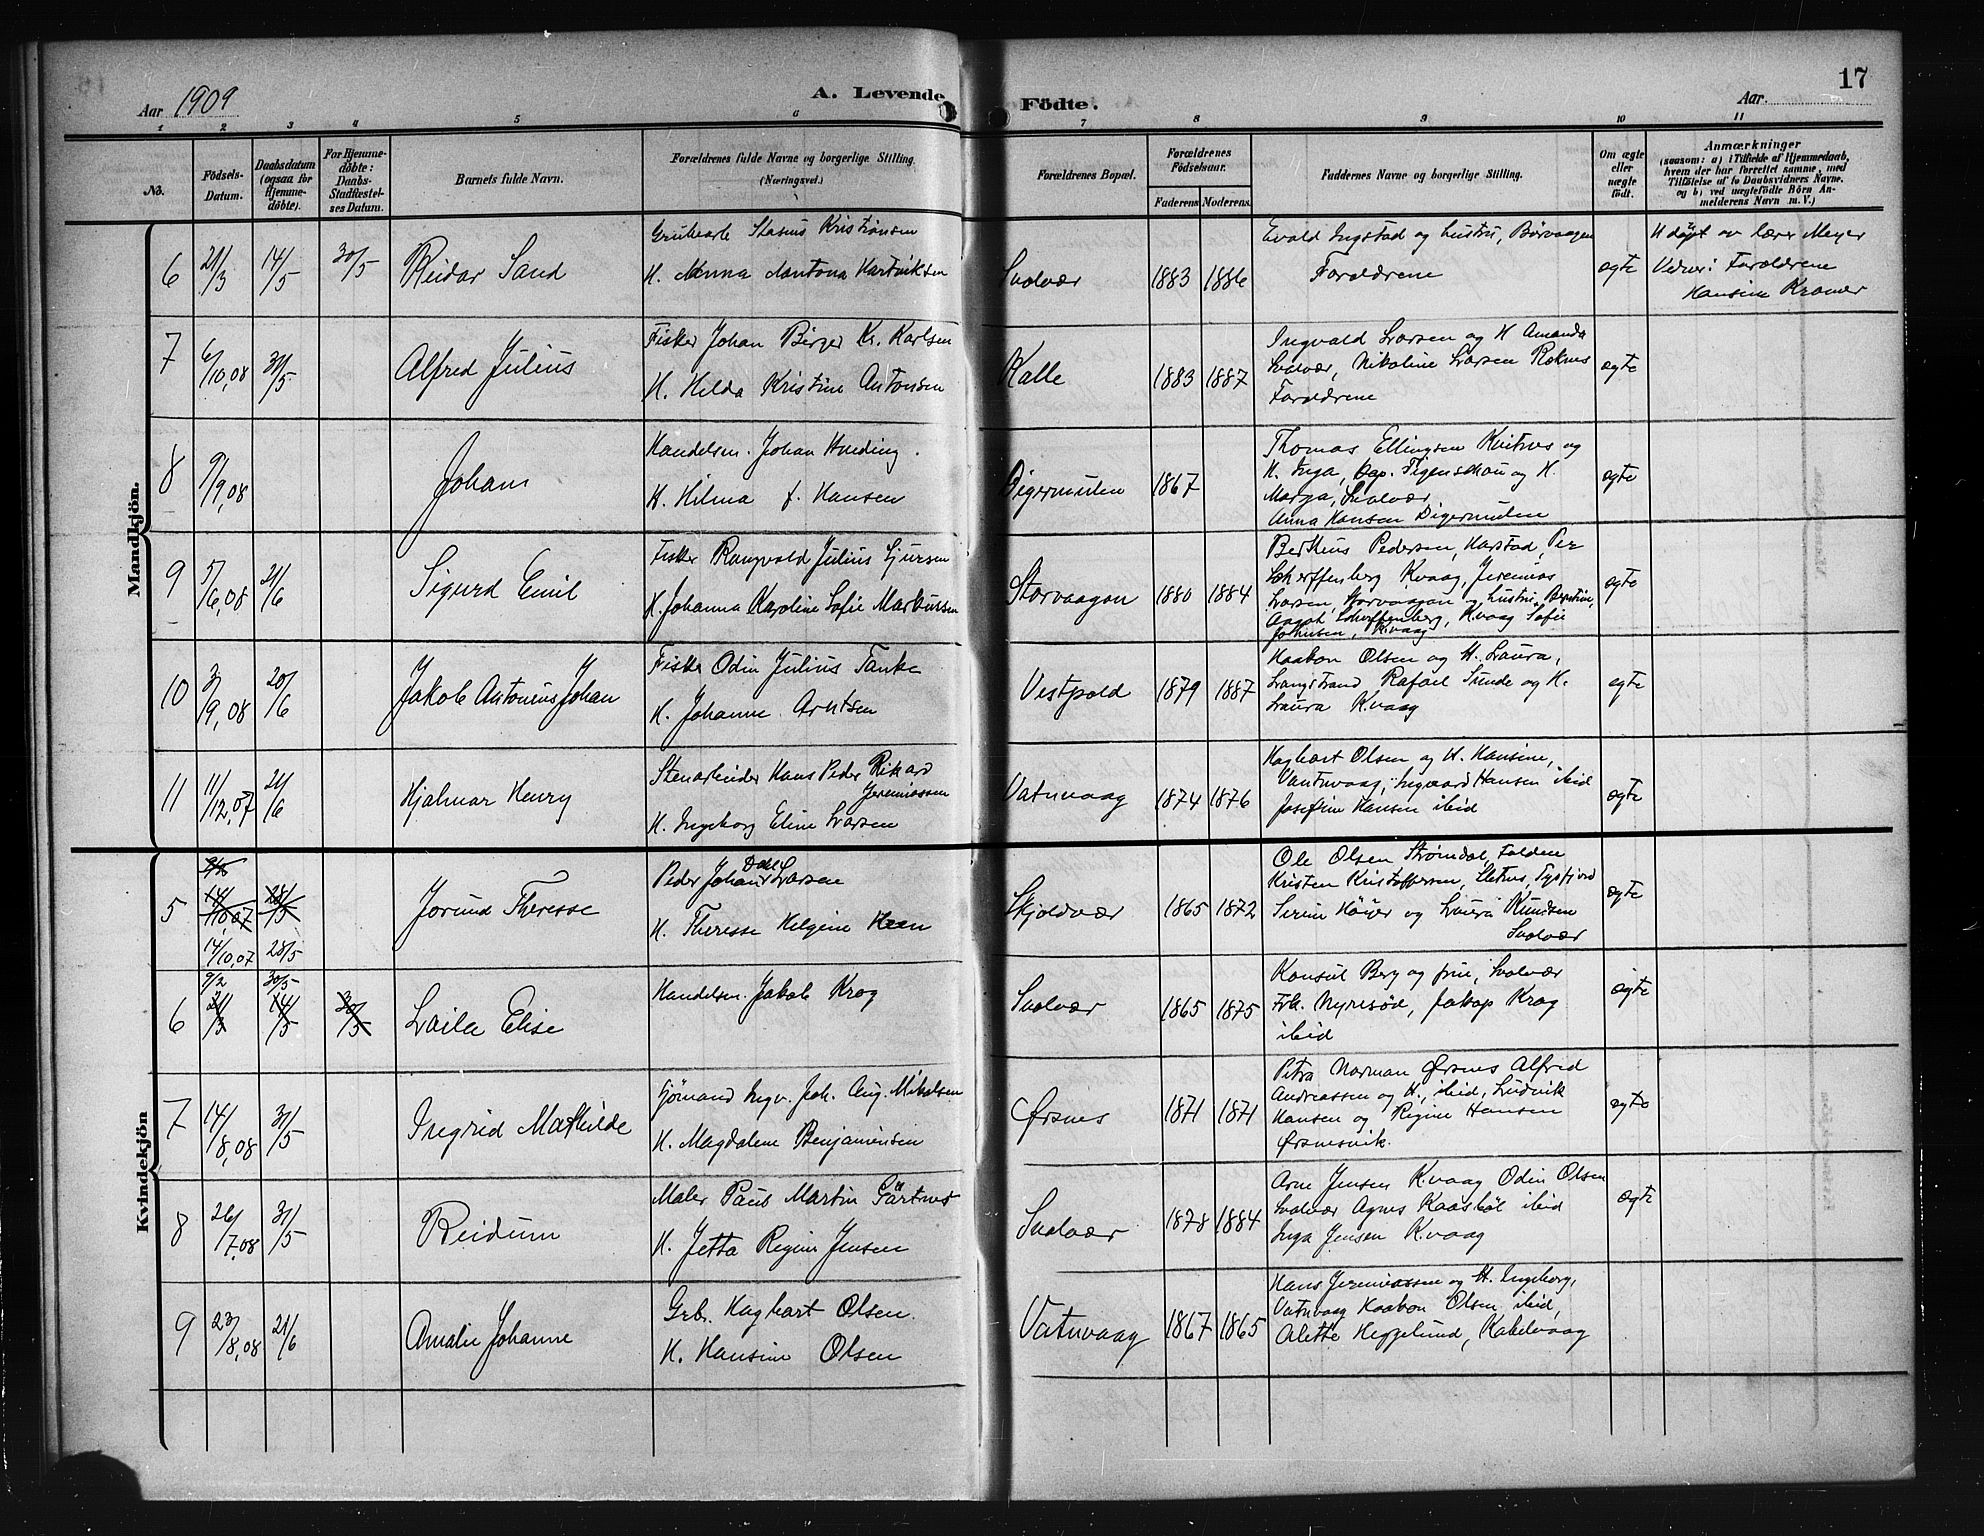 Aar 1909
A. Levende
Födte.
Aar.
17
1 2 3 4 5 6 7 8 9 10 11
No.
Födsels-
Datum.
Daabsdatum
(ogsaa for
Hjemme-
døbte).
For Hjemme-
døbte:
Daabs-
Stadfæstel-
ses Datum.
Barnets fulde Navn.
Forældrenes fulde Navne og borgerlige Stilling.
(Næringsvei.)
Forældrenes Bopæl.
Forældrenes
Födselsaar.
Faderens Moderens
Faddernes Navne og borgerlige Stilling.
Om ægte
eller
uægte
födt.
Anmærkninger
(saasom: a) i Tilfælde af Hjemmedaab,
hvem der har forrettet samme, med
Tilföielse af to Daabsvidners Navne,
og b) ved uægtefödte Börn An-
melderens Navn m. V.)
Mandkjön.
6 21/3 14/5 30/5 Reidar Sand
Grubearb Stasius Kristiansen
H. Menna Antona Hartviksen
Svolvær 1883 1886
Evald Ingstad og hustru, Børvaagen
Forældrene
ægte
H døpt av lærer Meyer
Vidner: Forældrene
Hansine Kramer
7 6/10,08 31/5 Alfred Julius
Fisker Johan Birger Kr. Karlsen
H. Hilda Kristine Antonsen
Kalle 1883 1887
Ingvald Larsen og H Amanda
Svolvær, Nikoline Larsen Roknes
Forældrene
ægte
8 9/9,08 Johan
Handelsm. Johan Hveding.
H. Hilma f. Hansen
Digermulen 1867
Thomas Ellingsen Kvitnes og
H. Inga, Figenschau og H.
Marga, Svolvær
Anna Hansen Digermulen
ægte
9 5/6,08 21/6 Sigurd Emil
Fisker Rangvald Julius Sjursen
H. Johanna Karoline Sofie Markussen
Storvaagan 1880 1884
Bertheus Pedersen, Harstad, Per
Scherffenberg Kvaag, Jeremias
Larsen, Storvaagan og hustru Bergitine,
Aagot Scherffenberg, Kvaag Sofie
Johnsen, Kvaag
ægte
10 3/9,08 20/6 Jakob Antonius Johan
Fisker Odin Julius Tanke
H. Johanne Arntsen
Vestpold 1879 1887
Haakon Olsen og H. Laura,
Langstrand Rafael Sunde og H.
Laura Kvaag
ægte
11 11/12,07 21/6 Hjalmar Henry
Stenarbeider Hans Peder Rikard
Jeremiassen
H. Ingeborg Eline Larsen
Vatnvaag 1874 1876
Hagbart Olsen og H. Hansine,
Vantnvaag, Ingvard Hansen ibid
Josefine Hansen ibid
ægte
Kvindekjön
5 14/10,07 28/5
14/10,07 28/5
Jorund Theresse
Dahl
Peder Johan Larsen
H. Theresse Helgine Heen
Skjoldvær 1865 1872
Ole Olsen Strømdal, Folden
Kristen Kristoffersen, Sletnes, Tysfjord
Serine Høyer og Laura Knudsen
Svolvær
ægte
9/2 30/5
6 21/3 14/5 30/5 Laila Elise
Handelsm. Jakob Krog
Svolvær 1865 1875
Konsul Berg og frue, Svolvær
Frk. Jakop Krog
ibid
ægte
7 14/8,08 31/5 Ingrid Mathilde
Sjømand Ingv. Joh. Aug. Mikalsen
H. Magdalene Benjaminsen
Ørsnes 1871 1871
Petra Norman Ørsnes Alfred
Andreassen og H., ibid, Ludvik
Hansen og Regine Hansen
Ørsnesvik.
ægte
8 26/7,08 31/5 Reidunn
Maler Paul Martin Gärtner
H. Jetta Regine Jensen
Svolvær 1878 1884
Arne Jensen Kvaag Odin Olsen
Svolvær Agnes Kaasbøl ibid
Inga Jensen Kvaag
ægte
9 23/8,08 21/6 Amalie Johanne
Grb. Hagbart Olsen.
H. Hansine Olsen
Vatnvaag 1867 1865
Hans Jeremiassen og H. Ingeborg,
Vatnvaag Haakon Olsen ibid,
Alette Heggelund, Kabelvaag